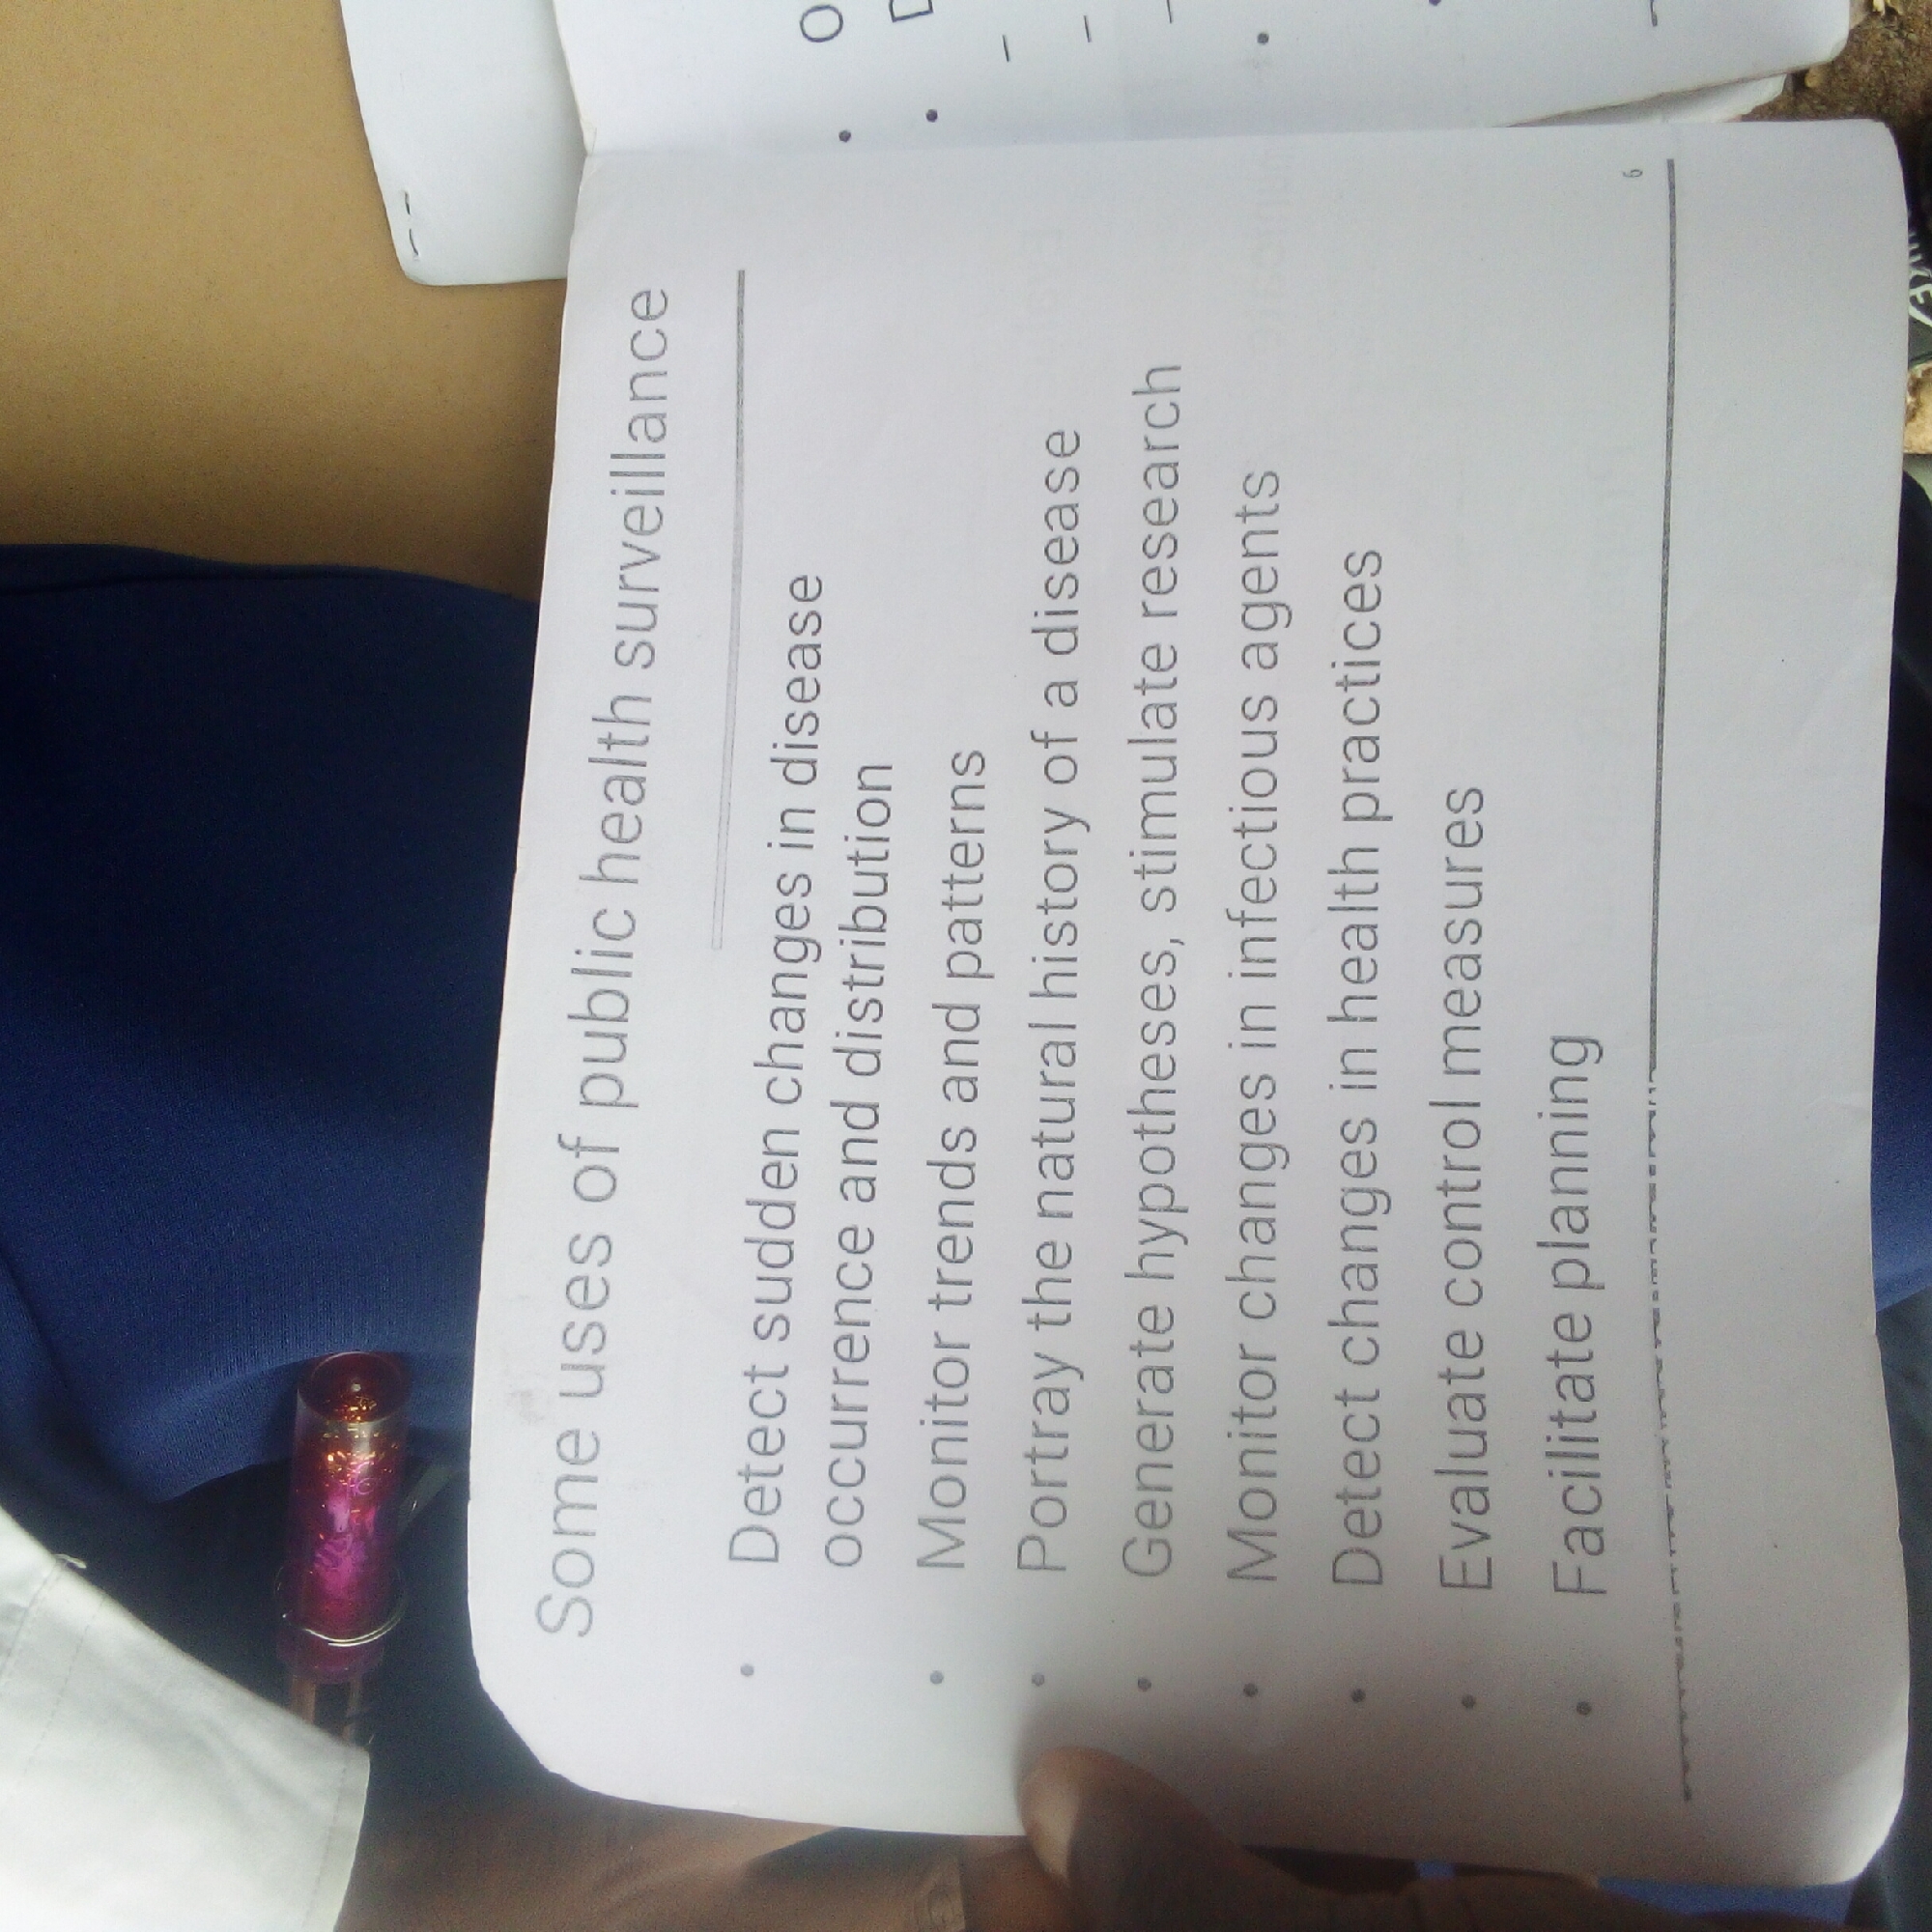 Some uses of public health surveillance
• Detect sudden changes in disease
occurrence and distribution
• Monitor trends and patterns
• Portray the natural history of a disease
• Generate hypotheses, stimulate research
• Monitor changes in infectious agents
• Detect changes in health practices
• Evaluate control measures
• Facilitate planning
6